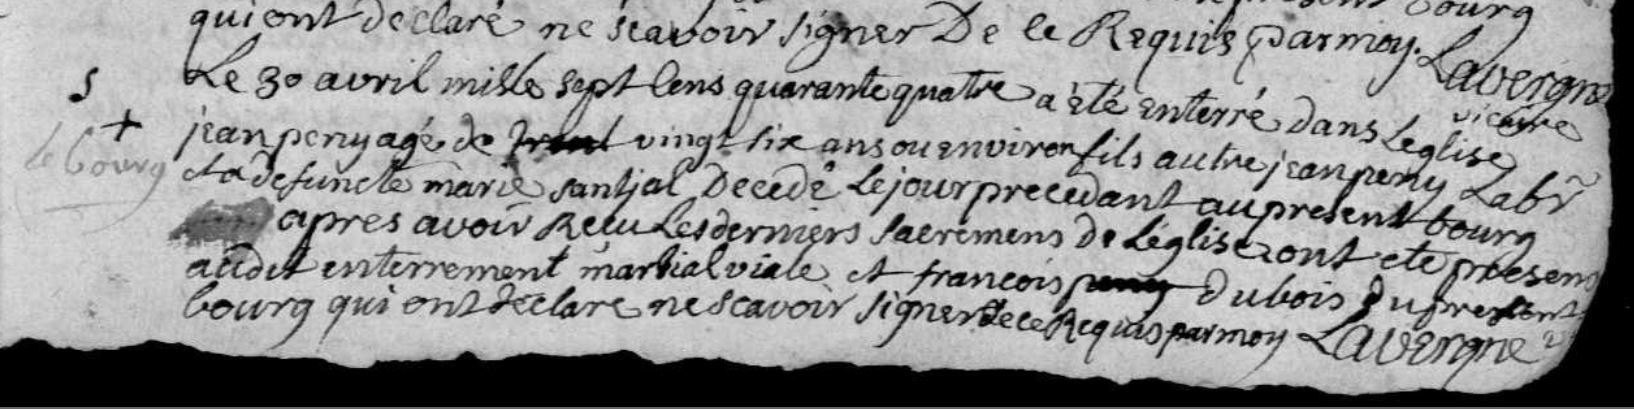 present bourg
qui ont declaré ne scavoir signer De ce Requis par moy. Lavergne
vicaire
Le 30 avril mille sept Cens quarante quatre a été enterré dans Leglise
s +
le bourg
jean peny agé de vingt six ans ou environ fils autre jean peny Labr
et a defuncte marie santjal Decedé Le jour precedant au present bourg
apres avoir Recu Les derniers sacremens de Léglise, ont eté presens
audit enterrement martial viale et francois dubois du present
bourg qui ont declare ne scavoir signer de ce Requis par moy Lavergne